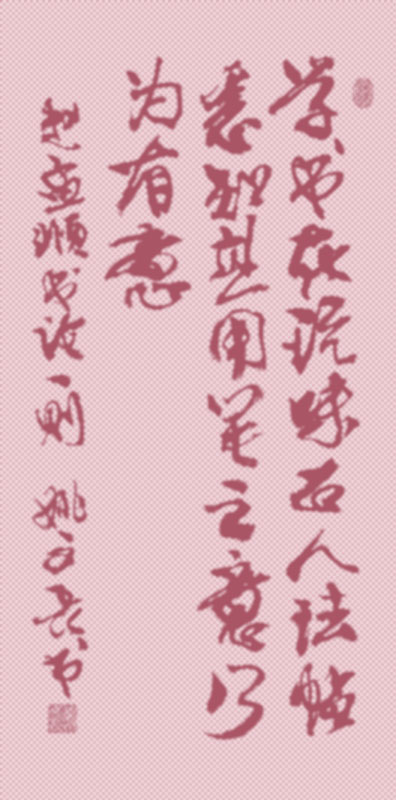 学书在玩味古人法帖
悉知其用笔之意乃
为有益
赵孟頫书论一则 姚文 书